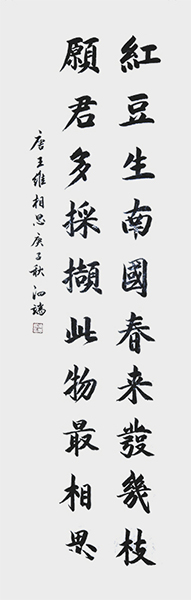 紅豆生南國春来發幾枝
願君多採擷此物最相思
唐王維相思庚子秋泗端